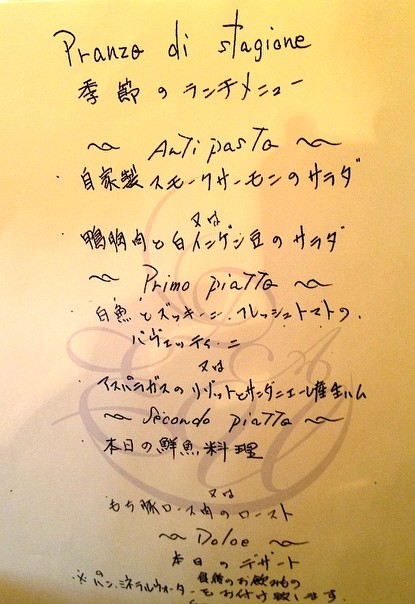 Pranzo di stagione
季節のランチメニュー
～ Antipasto ～
自家製スモークサーモンのサラダ
又は
鴨胸肉と白インゲン豆のサラダ
～ Primo piatto ～
白魚とズッキーニ、フレッシュトマトの
バヴェッティーニ
又は
アスパラガスのリゾットとサンダニエーレ産生ハム
～ Secondo piatto ～
本日の鮮魚料理
又は
もち豚ロース肉のロースト
～ Dolce ～
本日のデザート
※パン、ミネラルウォーター、食後のお飲もの
もお付け致します。